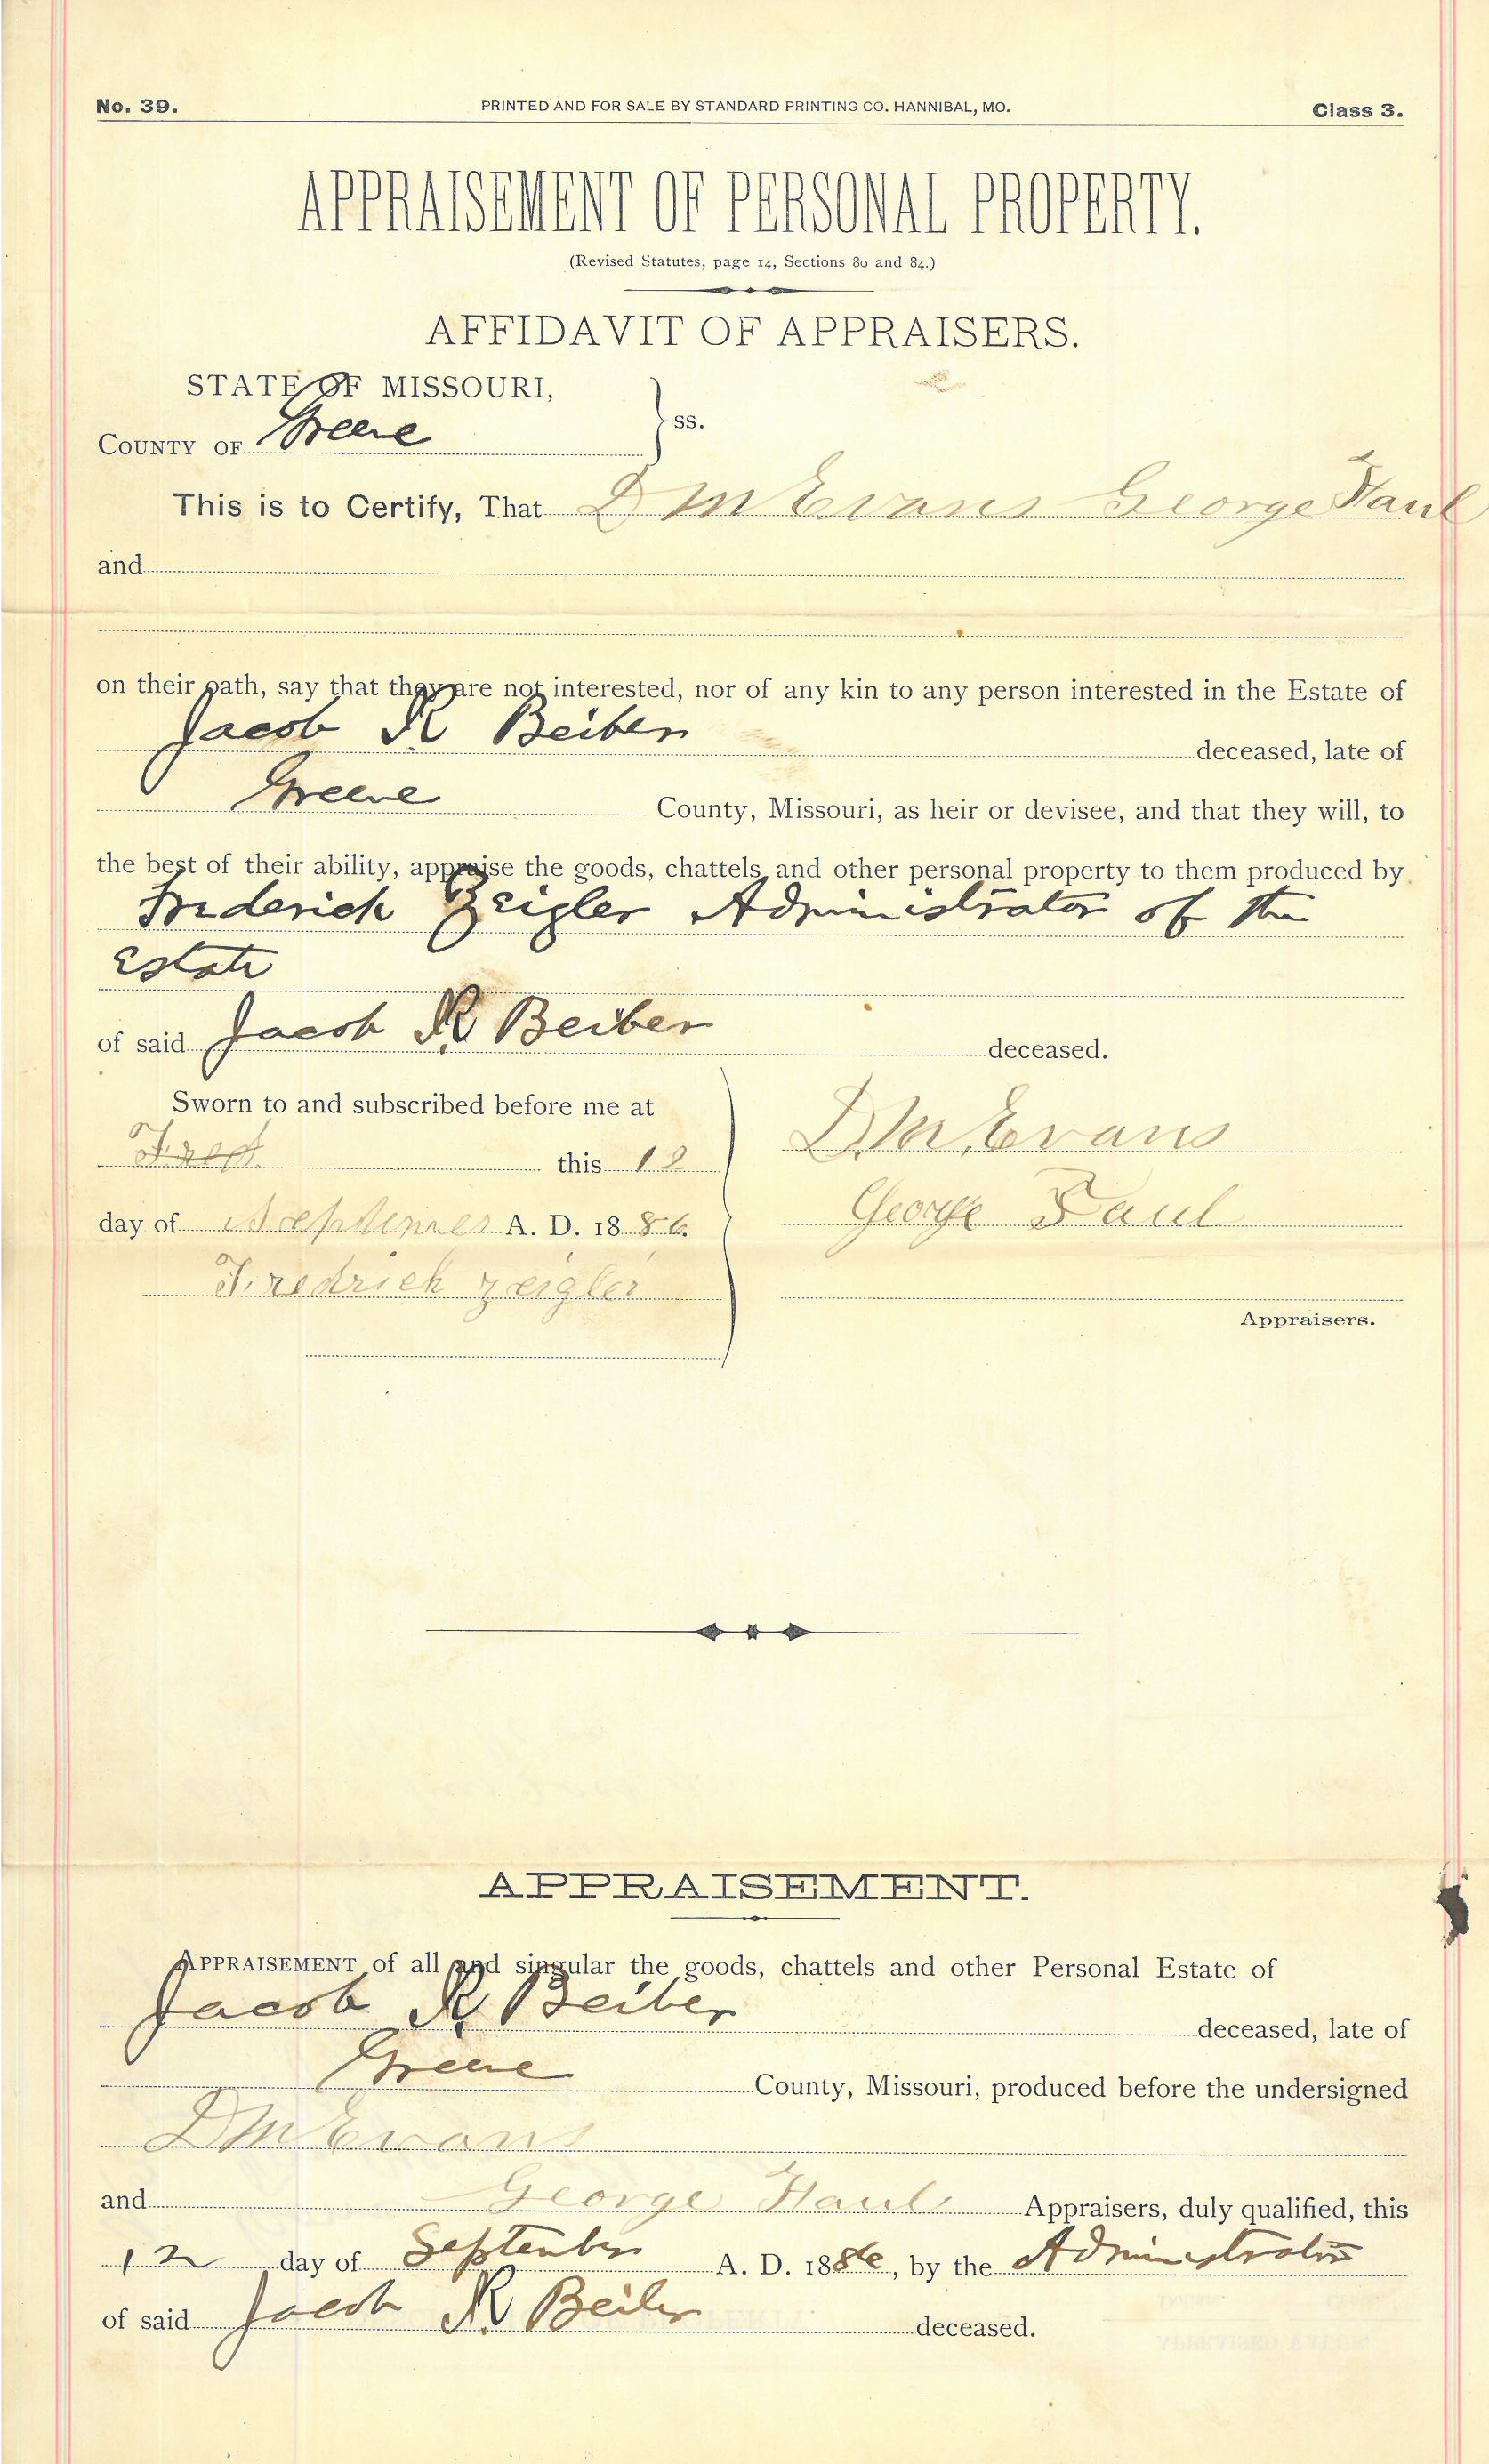 No. 39. PRINTED AND FOR SALE BY STANDARD PRINTING CO. HANNIBAL, MO. Class 3.
APPRAISEMENT OF PERSONAL PROPERTY.
(Revised Statutes, page 14, Sections 80 and 84.)
AFFIDAVIT OF APPRAISERS.
STATE OF MISSOURI,
COUNTY OF Greene ss.
This is to Certify, That D M Evans George Faul
and
on their oath, say that they are not interested, nor of any kin to any person interested in the Estate of
Jacob R Beiber deceased, late of
Greene County, Missouri, as heir or devisee, and that they will, to
the best of their ability, appraise the goods, chattels and other personal property to them produced by
Frederick Zeigler Administrator of the
Estate
of said Jacob R Beiber deceased.
Sworn to and subscribed before me at
this 12
D.M. Evans
day of A. D. 1886.
George Faul
Fredrick Zeigler
Appraisers.
APPRAISEMENT.
APPRAISEMENT of all and singular the goods, chattels and other Personal Estate of
Jacob R Beiber deceased, late of
Greene County, Missouri, produced before the undersigned
D M Evans
and George Faul Appraisers, duly qualified, this
12 day of September A. D. 1886, by the Administrator
of said Jacob R Beiber deceased.